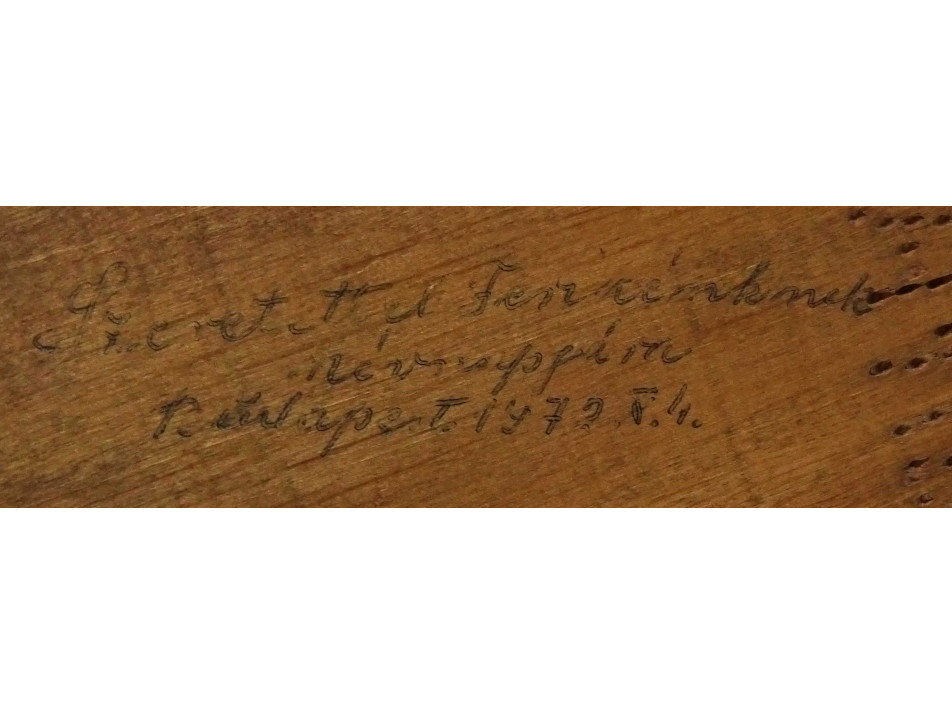 Szeretettel Ferikénknek
névnapjára
Budapest 1973. V. 4.